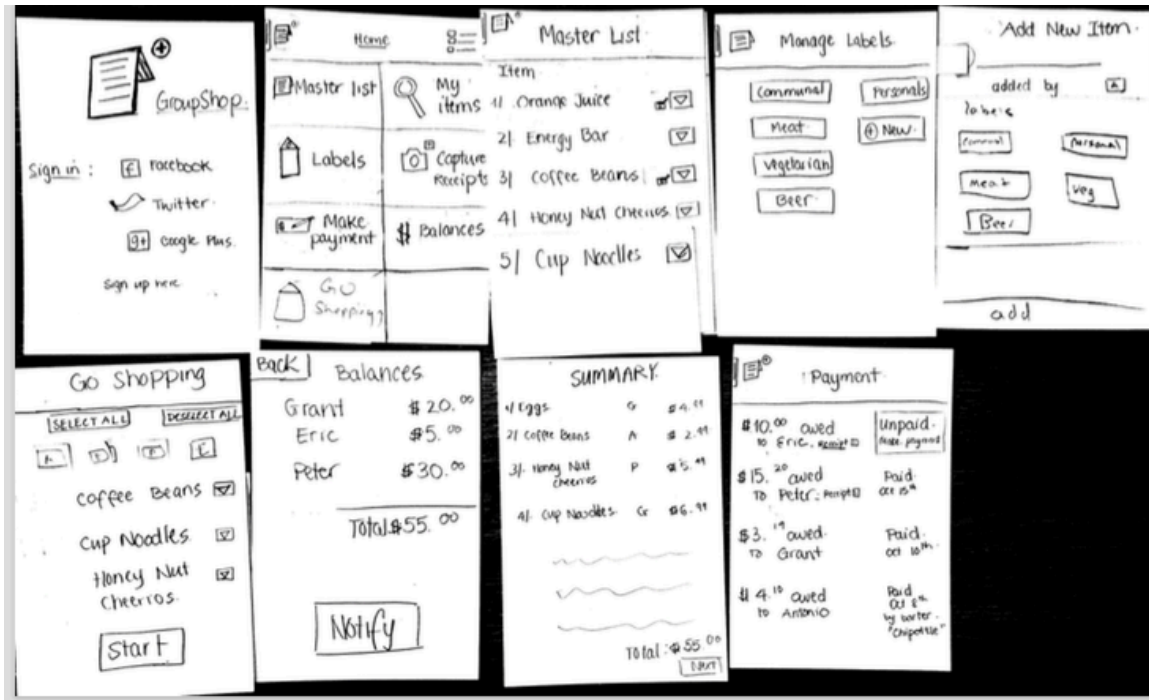 GroupShop.
Sign in :
Facebook
Twitter.
g+ Google Plus.
Sign up here
Home
Master list
My items
Labels
Capture Receipts
Make payment
$ Balances
Go Shopping
Master List
Item
1/ Orange Juice
2/ Energy Bar
3/ Coffee Beans
4/ Honey Nut Cheerios
5/ Cup Noodles
Manage Labels
Communal
Personals
Meat
+ New.
Vegetarian
Beer
Add New Item.
added by A
labels
Personal
Meat
Veg
Beer
add
Go Shopping
SELECT ALL
DESELECT ALL
Coffee Beans
Cup Noodles
Honey Nut
Cheerros.
Start
Back
Balances
Grant $20.00
Eric $5.00
Peter $30.00
Total $55.00
Notify
SUMMARY.
1/ Eggs G $4.99
2/ Coffee Beans A $2.99
3/. Honey Nut P $5.99
cheerros
4/. Cup Noodles G $6.99
Total: $55.00
Next
Payment
$10.00 owed
to Eric. Receipt
Unpaid.
Make payment
$15.20 owed
To Peter. Receipt
Paid.
Oct 15th
$3.19 owed.
To Grant
Paid.
Oct 10th.
$4.10 owed
to Antonio
Paid
Oct 8th
by barter.
"Chipottle"